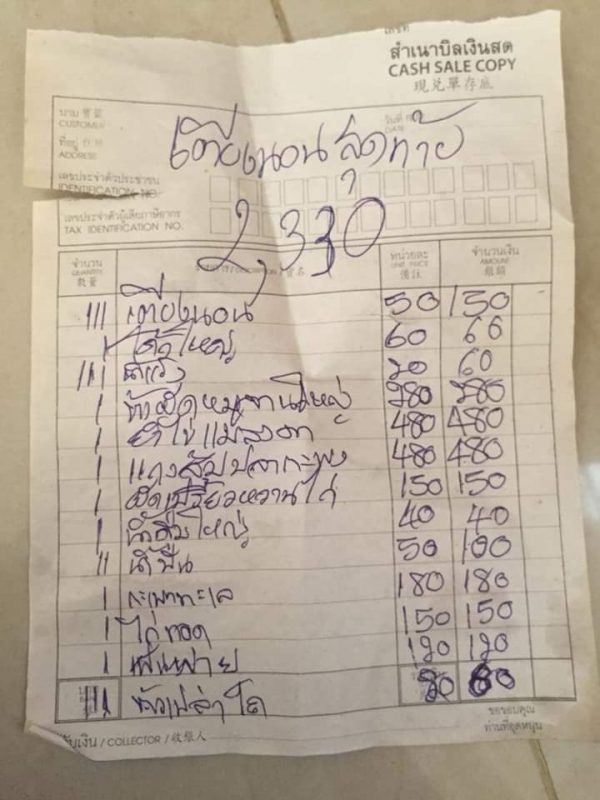 เลขที่
สำเนาบิลเงินสด
CASH SALE COPY
現兌單存底
นาม 寶號
CUSTOMER
วันที่
DATE
ที่อยู่ 住址
ADDRESS
เตียงนอน สุดท้าย
เลขประจำตัวประชาชน
IDENTIFICATION NO.
เลขประจำตัวผู้เสียภาษีอากร
TAX IDENTIFICATION NO.
2,330
จำนวน QUANTITY 數量 รายการ / DESCRIPTION / 貨名 หน่วยละ UNIT PRICE 備註 จำนวนเงิน AMOUNT 銀額
III เตียงนอน 50 150
I โค้กใหญ่ 60 60
III น้ำแข็ง 20 60
I 280 280
I 480 480
I แกงส้มปลากะพง 480 480
I ผัดเปรี้ยวหวานไก่ 150 150
I น้ำส้มใหญ่ 40 40
II 50 100
I กะเพาทะเล 180 180
I ไก่ทอด 150 150
I 120 120
III ข้าวเปล่าโถ 60
รับเงิน / COLLECTOR / 收銀人
ขอขอบคุณ
ท่านที่อุดหนุน